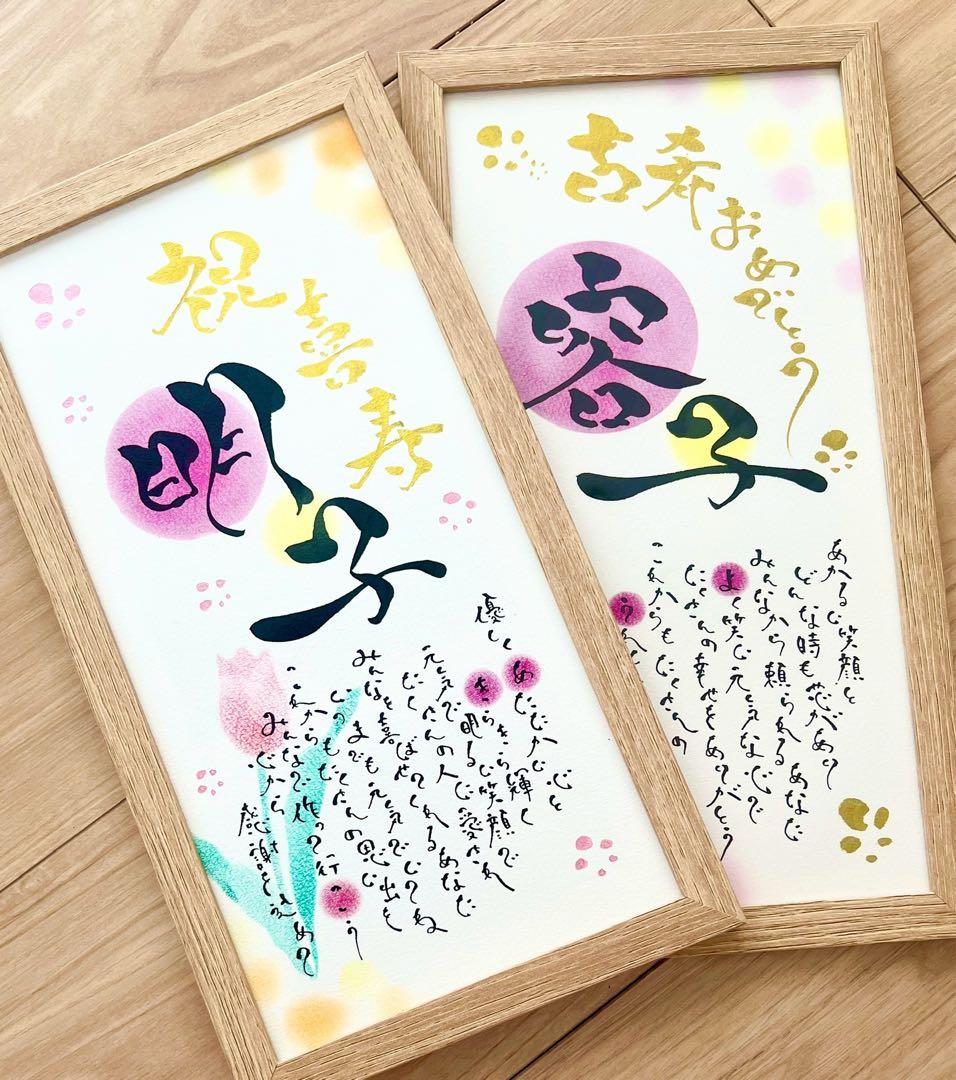 祝喜寿
明子
優しくあたたかい心と
きらきら輝く
明るい笑顔で
たくさんの人に愛され
みんなを喜ばせてくれるあなた
いつまでも元気でいてね
たくさんの思い出を
これから
みんなで作って行こう
心から
感謝をこめて
古希おめでとう
容子
あかるい笑顔と
どんな時も
みんなから頼られるあなた
よく笑い元気な心で
たくさんの幸せをありがとう
これからもたくさんの